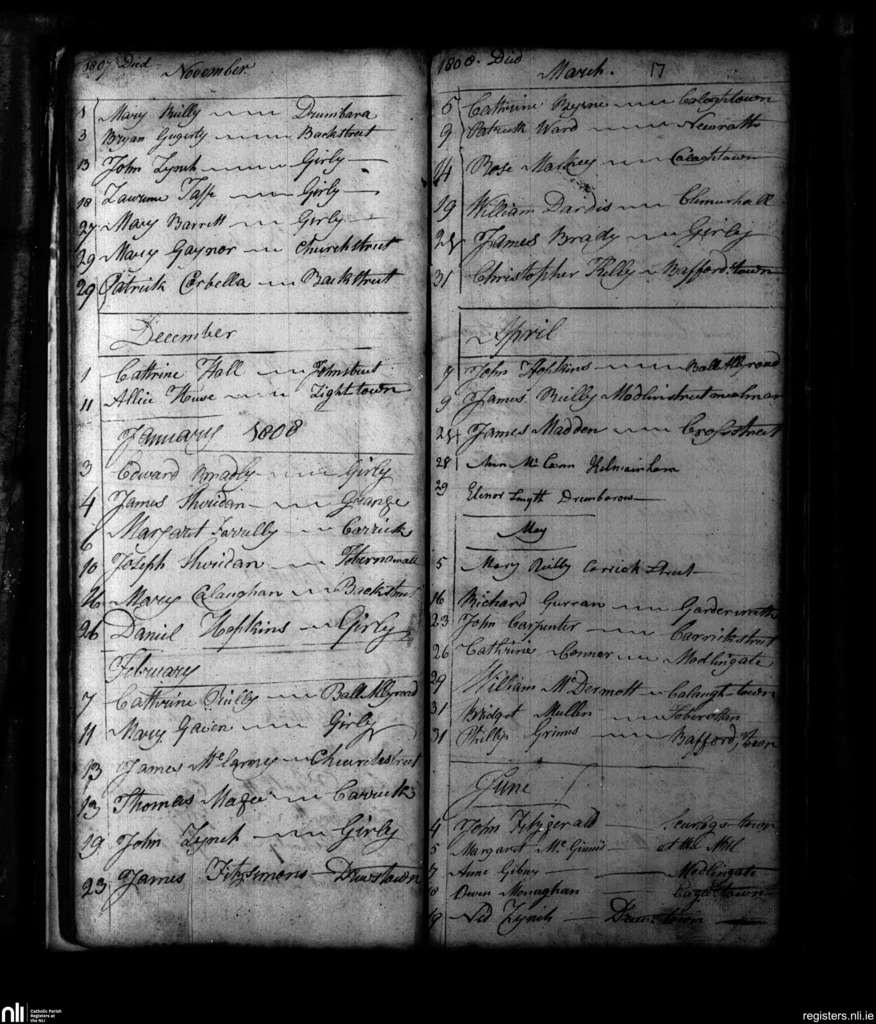 1807 Died
November
1 Mary Reilly Drumbara
3 Bryan Gugerty Backstreet
13 John Lynch Girly
18 Lawrence Taffe Girly
27 Mary Barrett Girly
29 Mary Gaynor Churchstreet
29 Patrick Corbella Backstreet
December
1 Cathrine Hall Johnstreet
11 Allice Howse Lightown
January 1808
3 Edward Bradly Girly
4 James Sheridan Grange
6 Margaret Farrelly Carrick
10 Joseph Sheridan
16 Mary Calaughan Backstreet
26 Daniel Hopkins Girly
February
7 Cathrine Reilly BallAllyroad
11 Mary Gaven Girly
13 James Churchstreet
13 Thomas Magee Carrick
19 John Lynch Girly
23 James Fitzsimons Drewstown
1808 Died
March. 17
5 Cathrine Byrne Calaghtown
9 Patrick Ward Newrath
14 Rose Markey Calaghtown
19 William Dardis
24 James Brady Girly
31 Christopher Kelly Baffordstown
April
7 John Hopkins BallAllyroad
9 James Reilly Modlinstreet
24 James Madden Crossstreet
28 Ann McCann Kilmainham
29 Elenor Drumbarow
May
5 Mary Reilly Carrick Street
16 Richard Curran
23 John Carpenter Carrickstreet
26 Cathrine Conner Modlingate
29 William McDermott Calaugh-town
31 Bridget Mullen
31 Phillip Grimes Bafford, town
June
4 John Fitzgerald
5 Margaret at the Mill
7 Anne Gibney Modlingate
18 Owen Monaghan
19 Ned Lynch Drewstown
nli
Catholic Parish
Registers at
the NLI
registers.nli.ie